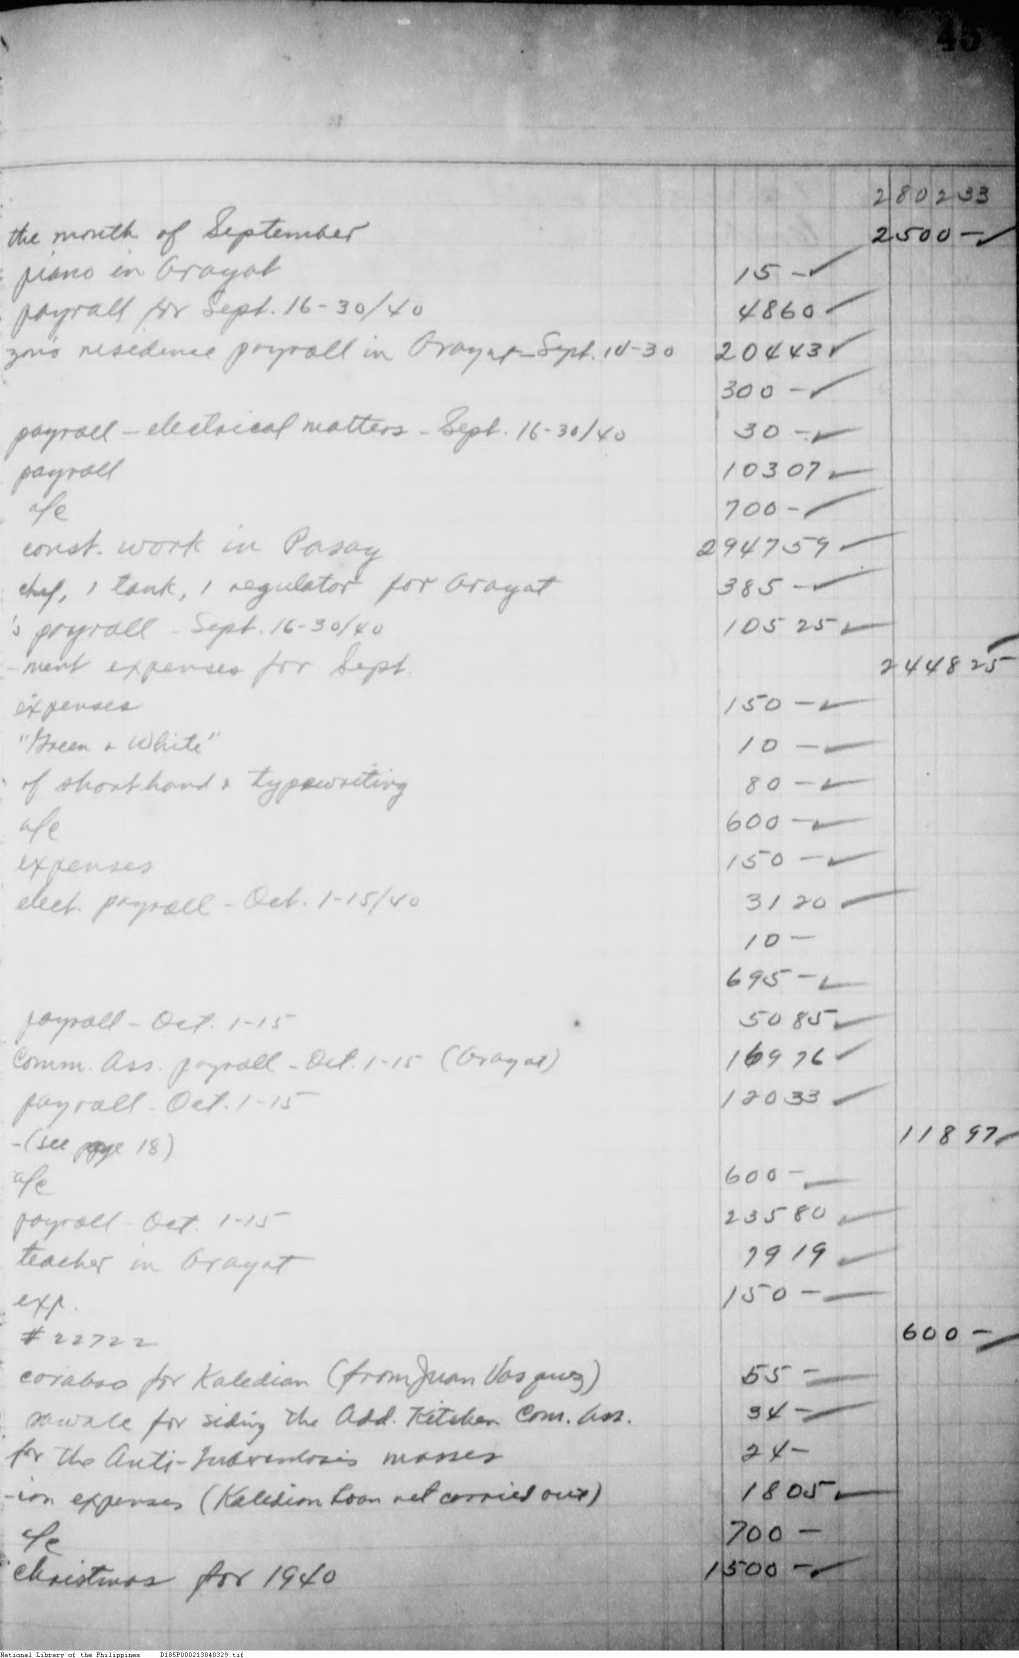 45
280233
the month of September 2500 -
piano in Arayat 15 -
payroll for Sept. 16-30/40 4860
residence payroll in Arayat - Sept. 16-30 20443
300 -
payroll - electrical matters - Sept. 16-30/40 30 -
payroll 10307
a/c 700 -
const. work in Pasay 294759
chef, 1 tank, 1 regulator for Arayat 385 -
's payroll - Sept. 16-30/40 10525
-ment expenses for Sept. 244825
expenses 150 -
"Green & White" 10 -
of shorthand & typewriting 80 -
a/c 600 -
expenses 150 -
elect. payroll - Oct. 1-15/40 3120
10 -
695 -
payroll - Oct. 1-15 5085
Comm. Ass. payroll - Oct. 1-15 (Arayat) 16976
payroll - Oct. 1-15 12033
- (see page 18) 11897
a/c 600 -
payroll - Oct. 1-15 23580
teacher in Arayat 7919
exp. 150 -
# 22722 600 -
carabao for Kaledian (from Juan Vasquez) 55 -
sawale for siding the Add. Kitchen Com. Ass. 34 -
for the Anti-Tuberculosis masses 24 -
-ion expenses (Kaledian Loan not carried out) 1805
a/c 700 -
Christmas for 1940 1500 -
National Library of the Philippines D185P000213040329.tif